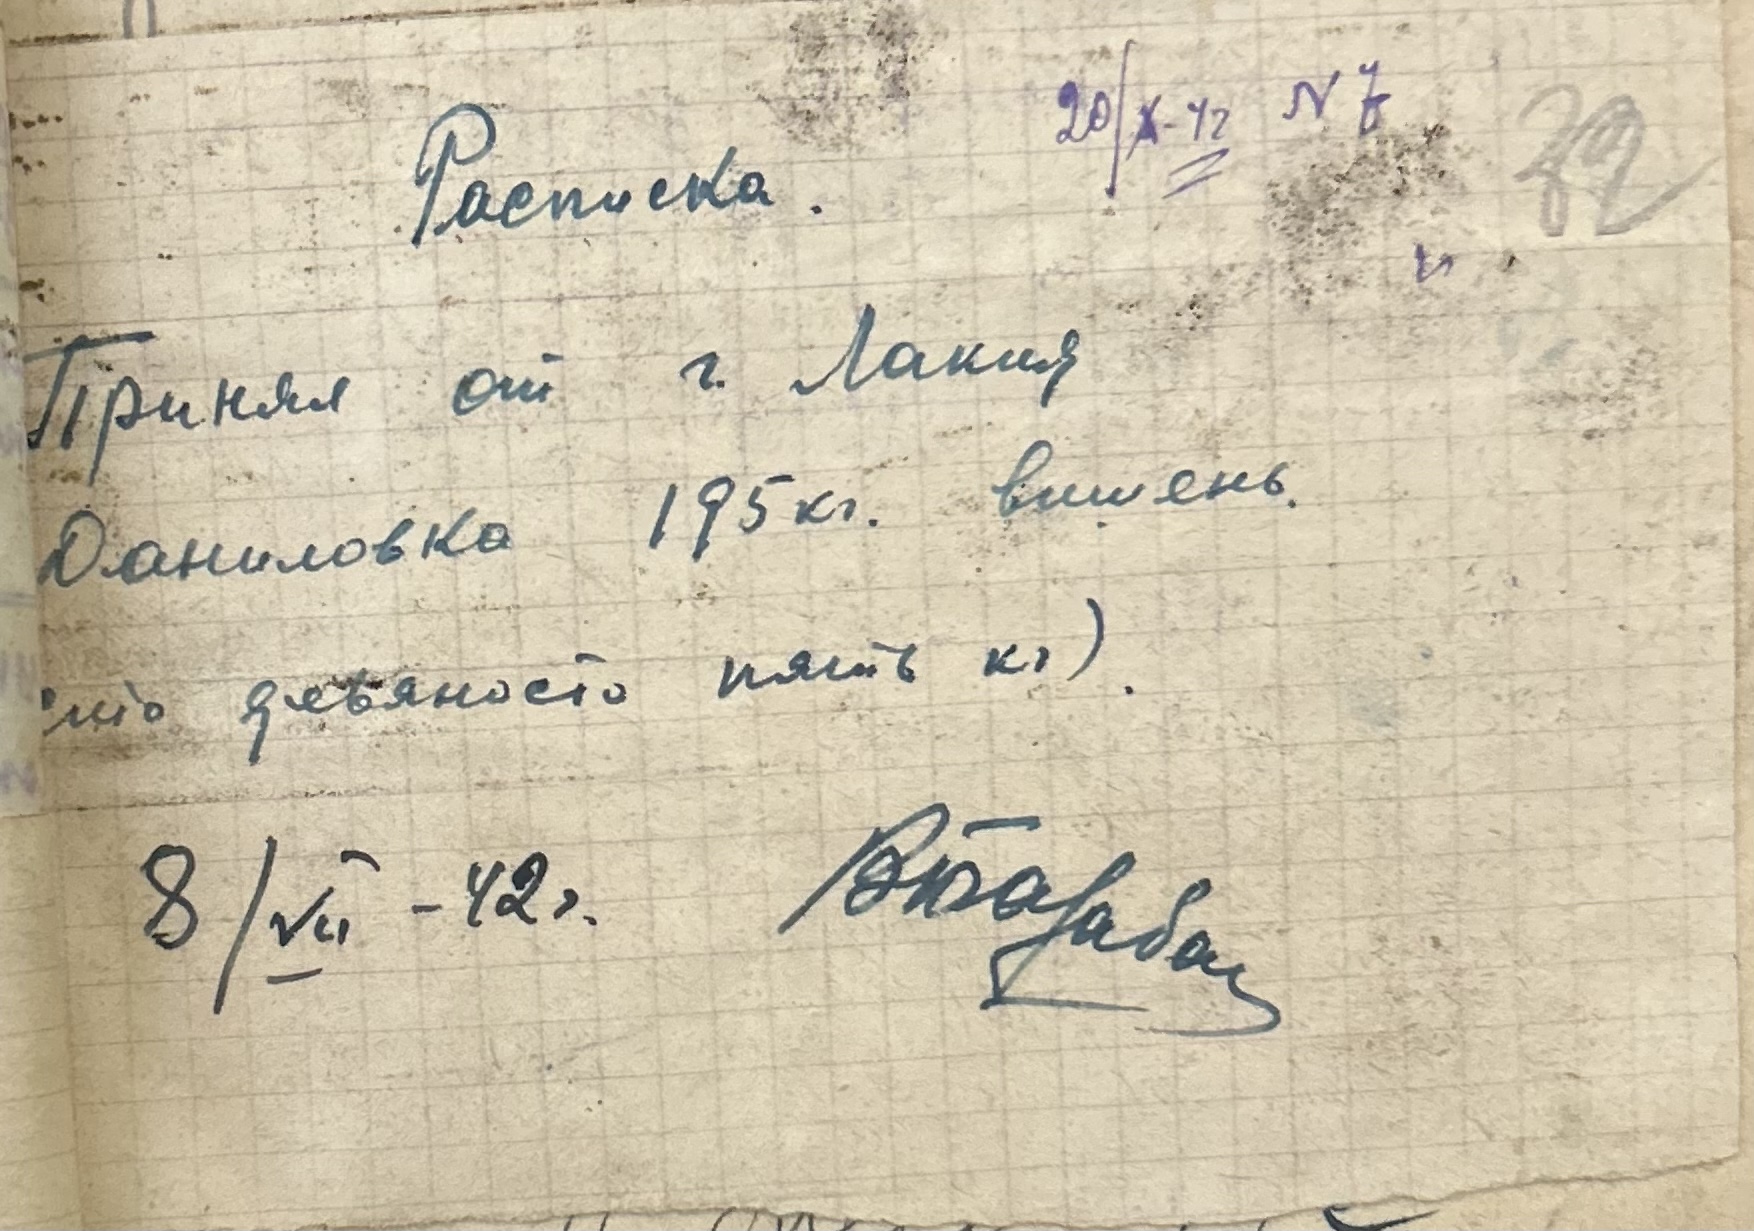 20/X-42 N 7
32
Расписка.
Принял от г. Лакия
Даниловка 195 кг. вишень.
сто девяносто пять кг).
8/VII-42 г.